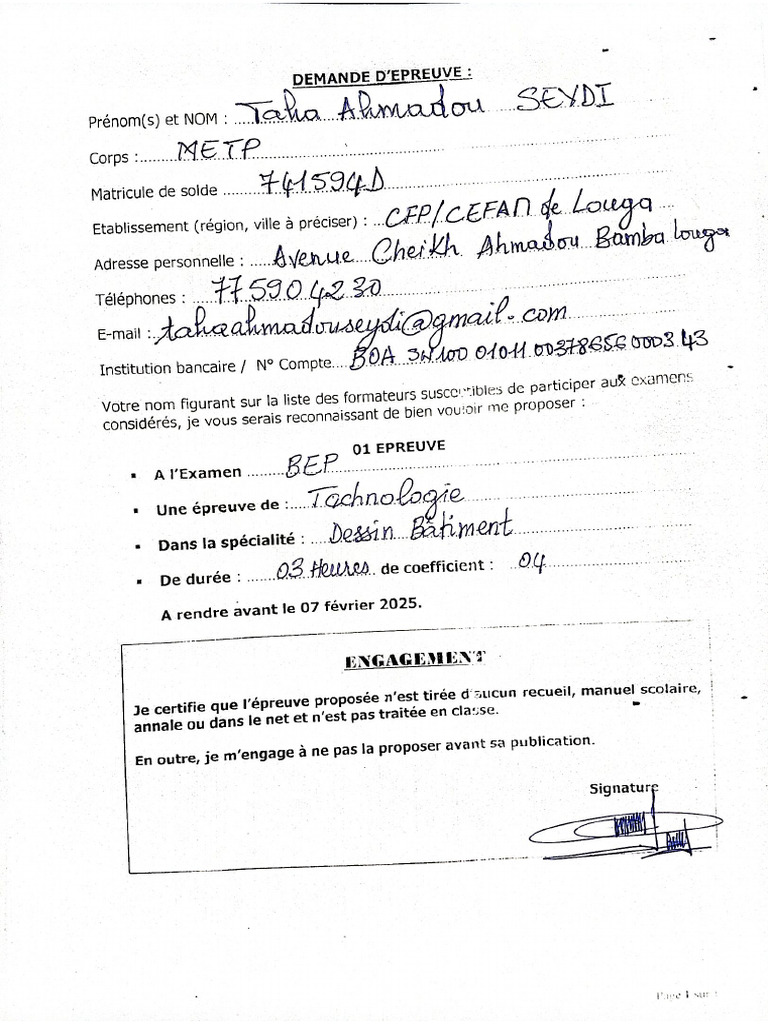 DEMANDE D'EPREUVE :
Prénom(s) et NOM : Taha Ahmadou SEYDI
Corps : METP
Matricule de solde 741594D
Etablissement (région, ville à préciser) : CFP/CEFAM de Louga
Adresse personnelle : Avenue Cheikh Ahmadou Bamba Louga
Téléphones : 77 590 42 30
E-mail : tahaahmadouseydi@gmail.com
Institution bancaire / N° Compte BOA
Votre nom figurant sur la liste des formateurs susceptibles de participer aux examens
considérés, je vous serais reconnaissant de bien vouloir me proposer :
01 EPREUVE
▪ A l'Examen BEP
▪ Une épreuve de : Technologie
▪ Dans la spécialité : Dessin Bâtiment
▪ De durée : 03 Heures de coefficient : 04
A rendre avant le 07 février 2025.
ENGAGEMENT
Je certifie que l'épreuve proposée n'est tirée d'aucun recueil, manuel scolaire,
annale ou dans le net et n'est pas traitée en classe.
En outre, je m'engage à ne pas la proposer avant sa publication.
Signature
Page 1 sur